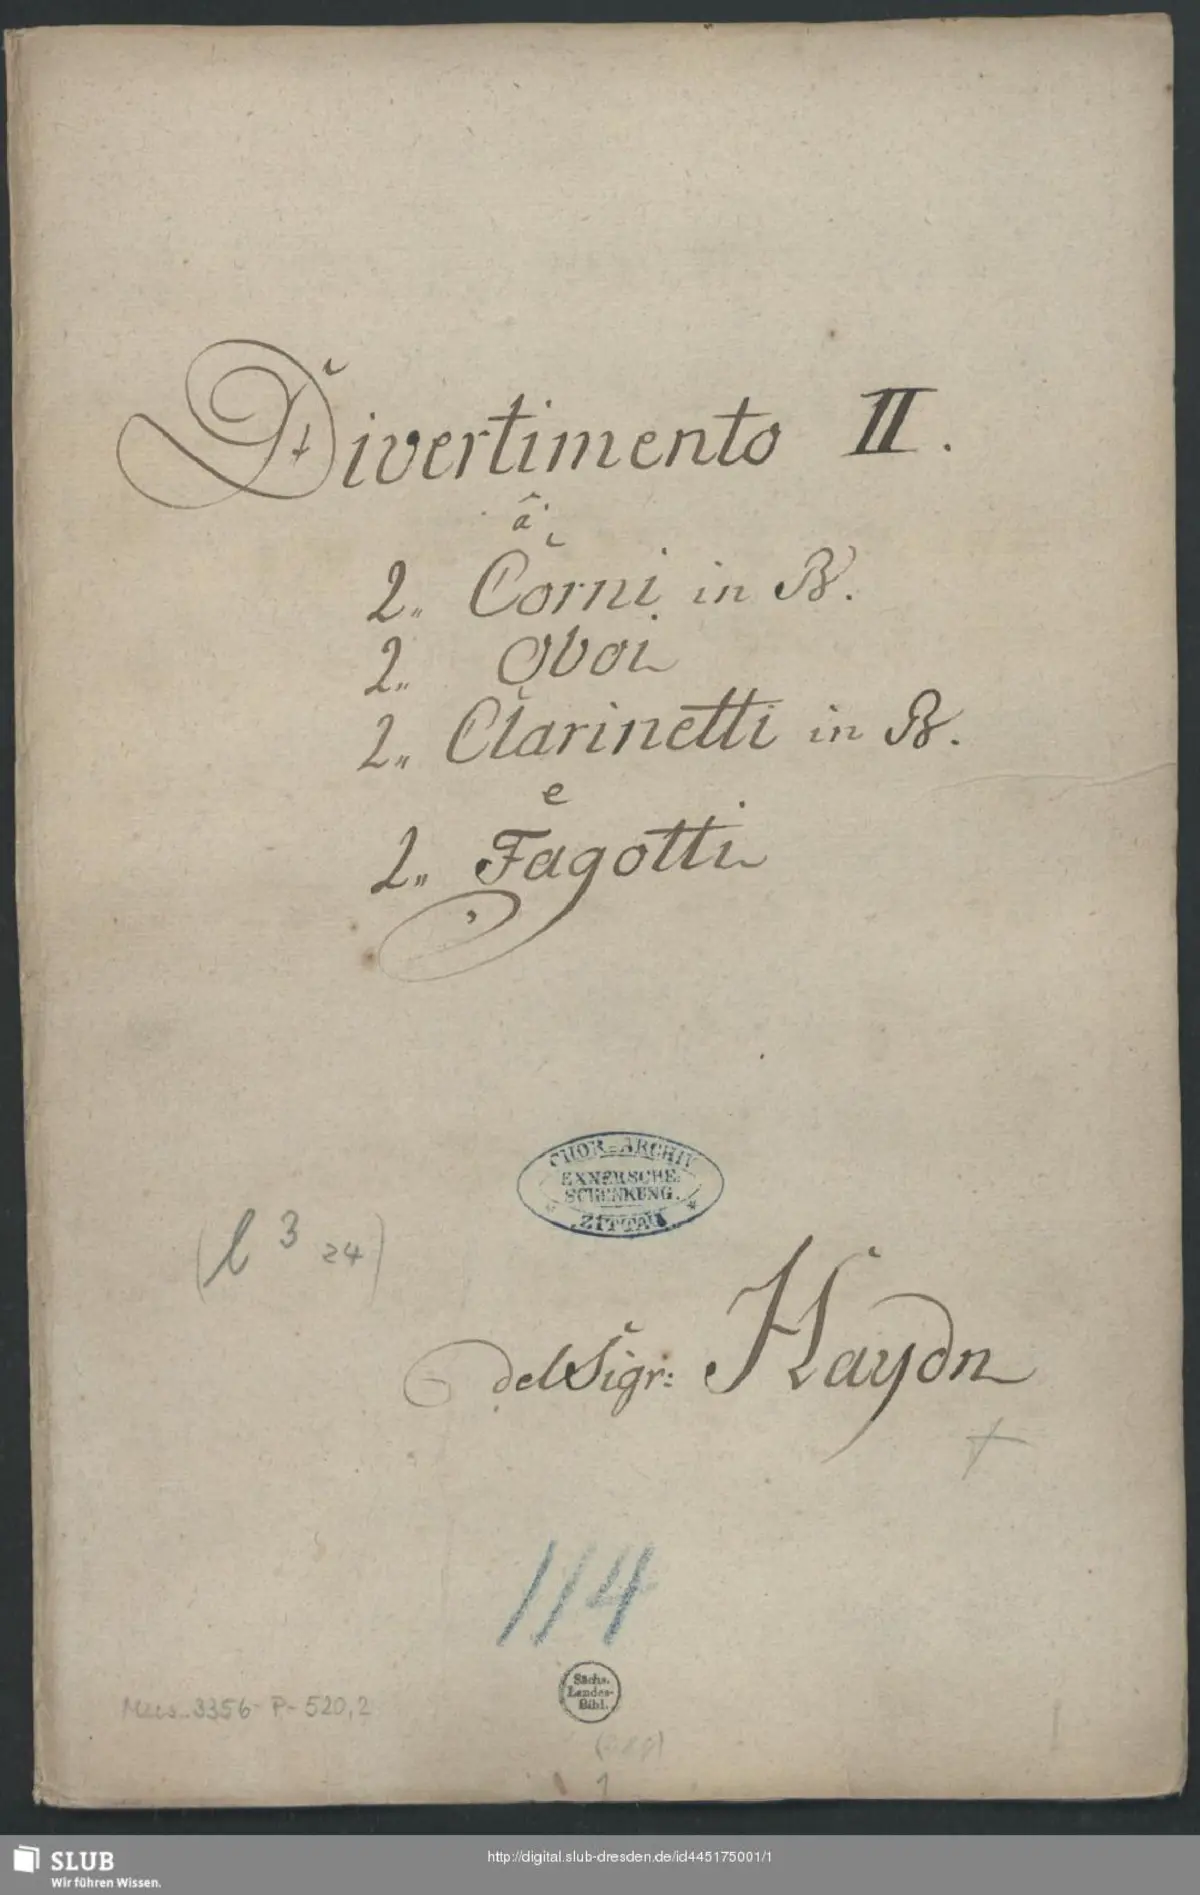 Divertimento II.
â
2„ Corni in B.
2„ Oboi
2„ Clarinetti in B.
e
2„ Fagotti
CHOR=ARCHIV
EXNERSCHE
SCHENKUNG.
ZITTAU
(l 3 24)
del Sigr: Haydn
114
Sächs.
Landes-
Bibl.
Mus. 3356-P-520,2
1
SLUB
Wir führen Wissen.
http://digital.slub-dresden.de/id445175001/1